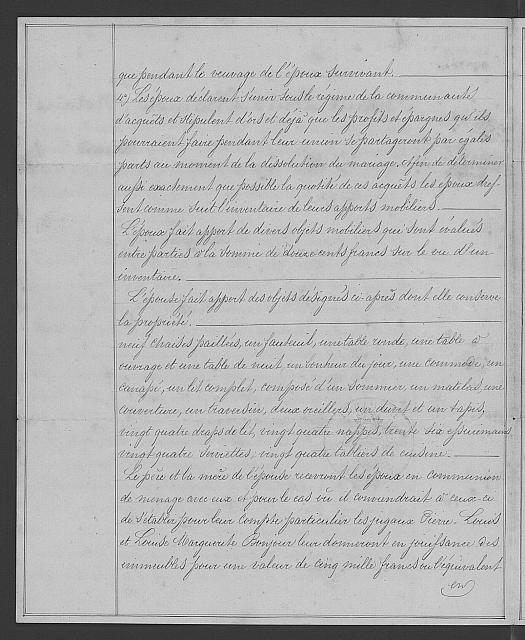 que pendant le veuvage de l'époux survivant.
4°) Les époux déclarent s'unir sous le régime de la communauté
d'acquêts et stipulent d'ors et déjà que les profits et épargnes qu'ils
pourraient faire pendant leur union se partageront par égales
parts au moment de la dissolution du mariage. Afin de déterminer
aussi exactement que possible la quotité de ces acquêts les époux dres-
sent comme suit l'inventaire de leurs apports mobiliers.
L'époux fait apport de divers objets mobiliers qui sont évalués
entre parties à la somme de douze cents francs sur le vu d'un
inventaire.
L'épouse fait apport des objets désignés ci-après dont elle conserve
la propriété.
neuf chaises paillées, un fauteuil, une table ronde, une table à
ouvrage et une table de nuit, un bonheur du jour, une commode, un
canapé, un lit complet, composé d'un sommier, un matelas, une
couverture, un traversin, deux oreillers, un duvet et un tapis,
vingt quatre draps de lit, vingt quatre nappes, trente six essuiemains
vingt quatre serviettes, vingt quatre tabliers de cuisine.
Le père et la mère de l'épouse recevront les époux en communion
de ménage avec eux et pour le cas où il conviendrait à ceux-ci
de s'établir pour leur compte particulier les jugaux Pierre-Louis
et Louise Marguerite Bonjour leur donneront en jouissance des
immeubles pour une valeur de cinq mille francs ou l'équivalent
en